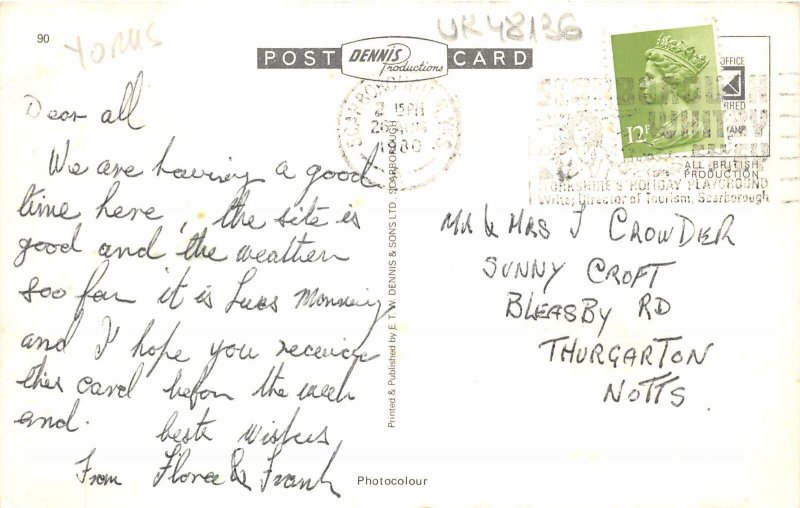 90
YORKS
UK48136
POST CARD
DENNIS
Productions
Dear all
We are having a good
time here, the site is
good and the weather
soo far it is Lues Morning
and I hope you receive
this card before the week
end.
beste wishes
From Flora & Frank
SCARBOROUGH
2 15PM
1980
12P
OFFICE
STAMP
ALL BRITISH
PRODUCTION
SCARBOROUGH
WHITBY
YORKSHIRE'S HOLIDAY PLAYGROUND
Write: Director of Tourism, Scarborough
Printed & Published by E. T. W. DENNIS & SONS LTD., SCARBOROUGH
MR & MRS J CROWDER
SUNNY CROFT
BLEASBY RD
THURGARTON
NOTTS
Photocolour